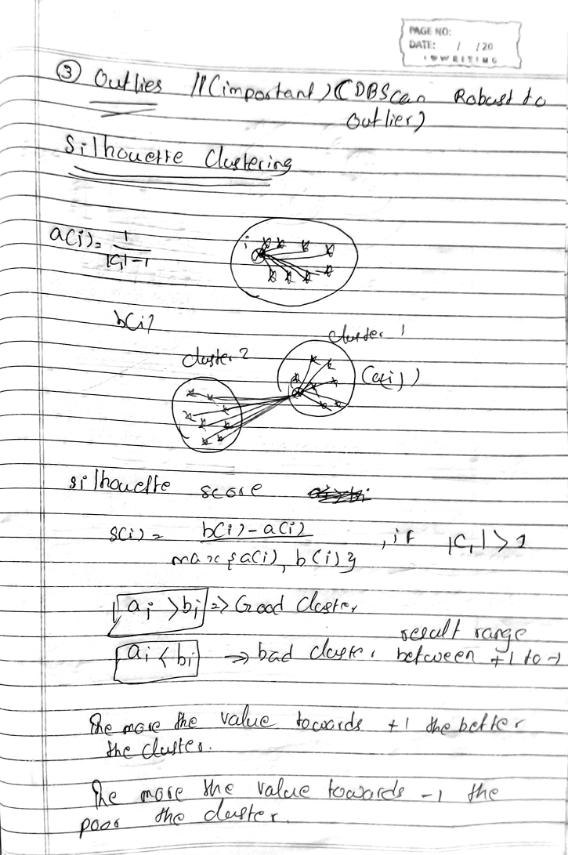 PAGE NO:
DATE: / /20
③ Outlies // (important) (DBScan Robust to
Outlier)
Silhouette Clustering
a(i) = 1
|Ci| - 1
i
b(i)
cluster 1
cluster 2
(a(i))
silhouette score
s(i) = b(i) - a(i) , if |Ci| > 1
max {a(i), b(i)}
ai > bi => Good Cluster
result range
ai < bi → bad cluster between +1 to -1
The more the value towards +1 the better
the cluster.
The more the value towards -1 the
poor the cluster.